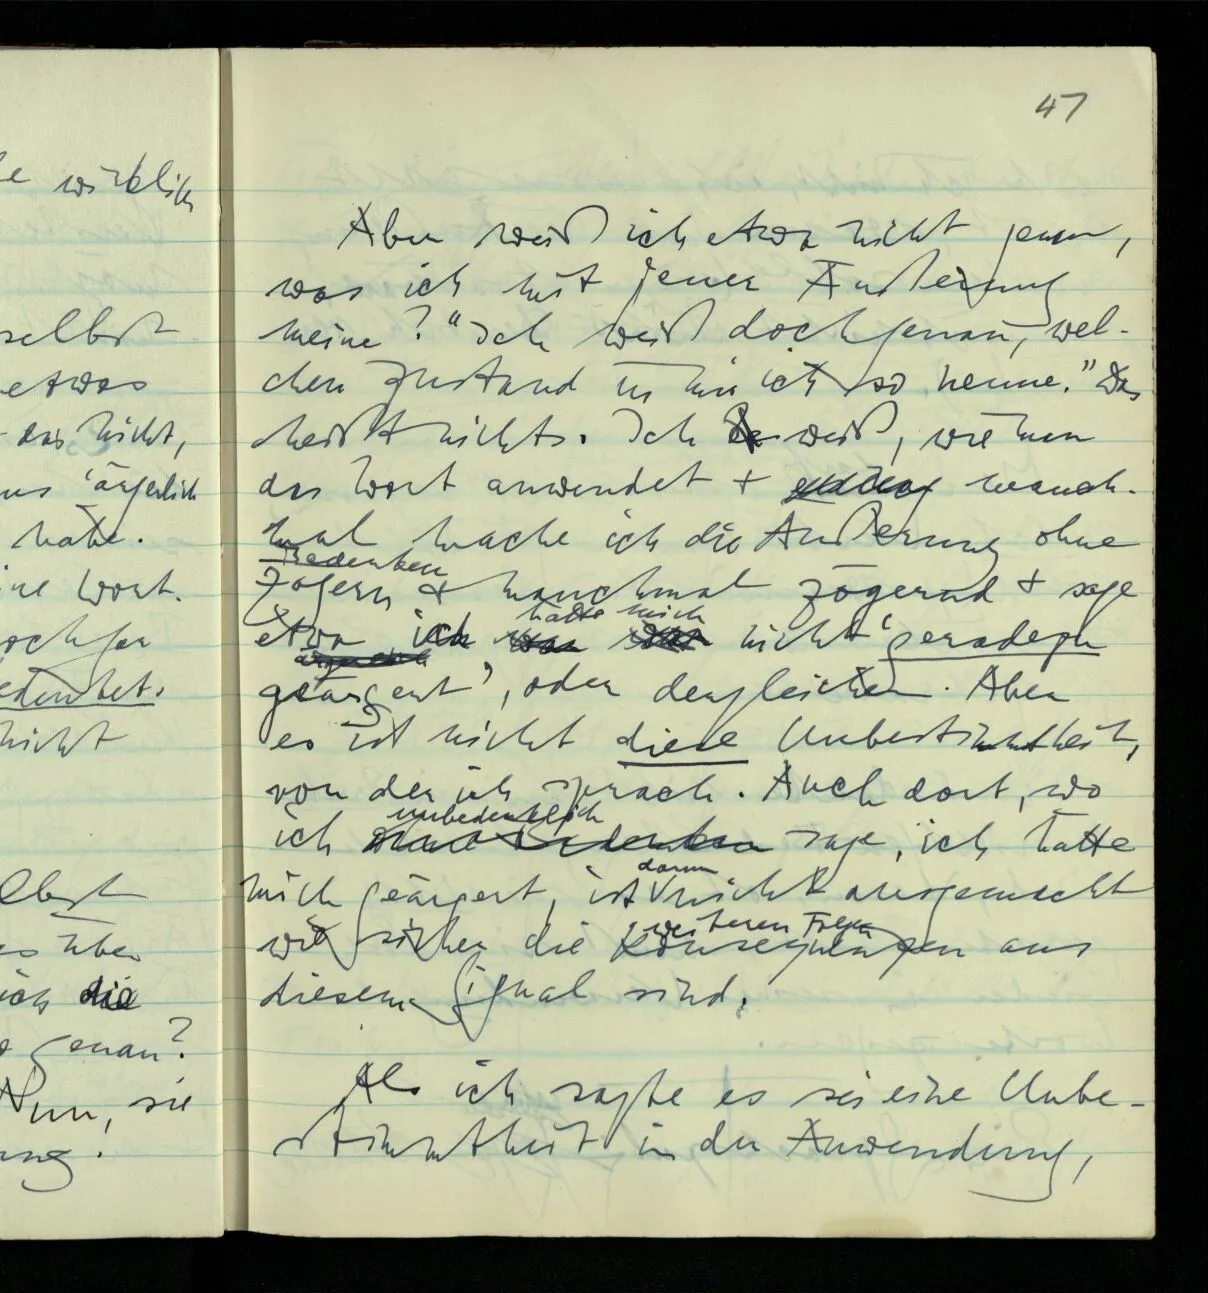 47
e wirklich
selbst
etwas
das nicht,
uns 'ärgerlich
habe.
ine Wort.
edeutet.
nicht
lbst
es über
ich die
genau?
Nun, sie
ung.
Aber weiß ich etwa nicht genau,
was ich mit jener Äußerung
meine? "Ich weiß doch genau, wel-
chen Zustand in mir ich so nenne." Das
heißt nichts. Ich weiß, wie man
das Wort anwendet + manch-
mal mache ich die Äußerung ohne
Bedenken
Zögern + manchmal zögernd + sage
hätte mich
etwa ich war nicht 'geradezu
ärgerlich
geärgert', oder dergleichen. Aber
es ist nicht diese Unbestimmtheit,
von der ich sprach. Auch dort, wo
unbedenklich
ich ohne Bedenken sage, ich hätte
darum
mich geärgert, ist nicht ausgemacht
weiteren Folgen
wie sicher die Konsequenzen aus
diesem Signal sind.
Als ich sagte es sei eine Unbe-
stimmtheit in der Anwendung,